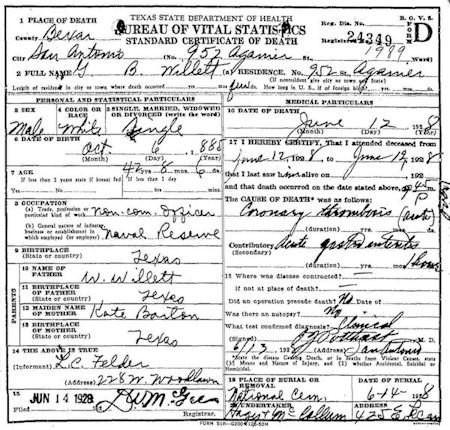 TEXAS STATE DEPARTMENT OF HEALTH
BUREAU OF VITAL STATISTICS
STANDARD CERTIFICATE OF DEATH
B. O. V. S.
FORM D
1 PLACE OF DEATH
County Bexar
City San Antonio No. 952 Agarita St.
Reg. Dis. No.
24349
Registered No. 1999
2 FULL NAME B. Willett RESIDENCE. No. 952 St.
Length of residence in city or town where death occurred yrs. mos. ds. How long in U. S., if of foreign birth? yrs. mos. ds.
PERSONAL AND STATISTICAL PARTICULARS
3 SEX
Male
4 COLOR OR RACE
White
5 SINGLE, MARRIED, WIDOWED OR DIVORCED (write the word)
Single
6 DATE OF BIRTH
Oct 6 1885
(Month) (Day) (Year)
7 AGE
42 yrs. 8 mos. 6 ds.
If less than 2 years state if breast fed If less than 1 day
8 OCCUPATION
(a) Trade, profession or particular kind of work non. com. officer
(b) General nature of industry, business or establishment in which employed (or employer) Naval Reserve
9 BIRTHPLACE
(State or country) Texas
PARENTS
10 NAME OF FATHER
W. Willett
11 BIRTHPLACE OF FATHER
(State or country) Texas
12 MAIDEN NAME OF MOTHER
Kate
13 BIRTHPLACE OF MOTHER
(State or country) Texas
14 THE ABOVE IS TRUE
(Informant) L. C. Felder
(Address) 228 W. Woodlawn
15
Filed JUN 14 1928 D. W. McGee
Registrar.
MEDICAL PARTICULARS
16 DATE OF DEATH
June 12 1928
(Month) (Day) (Year)
17 I HEREBY CERTIFY, That I attended deceased from
June 12, 1928 to June 12, 1928
that I last saw h alive on 192
and that death occurred on the date stated above, at
The CAUSE OF DEATH* was as follows:
Coronary thrombosis
(duration) yrs. mos. ds.
Contributory acute
(duration) yrs. mos.
18 Where was disease contracted?
if not at place of death?
Did an operation precede death? No Date of
Was there an autopsy? No
What test confirmed diagnosis? Clinical
(Signed) M. D.
6/13, 1928 (Address) San Antonio
*State the disease Causing Death, or in Deaths from Violent Causes, state (1) Means and Nature of Injury, and (2) whether Accidental, Suicidal, or Homicidal.
19 PLACE OF BURIAL OR REMOVAL
National Cem.
DATE OF BURIAL
6-14-1928
20 UNDERTAKER
Hagy McCollum
(Address)
425 E.